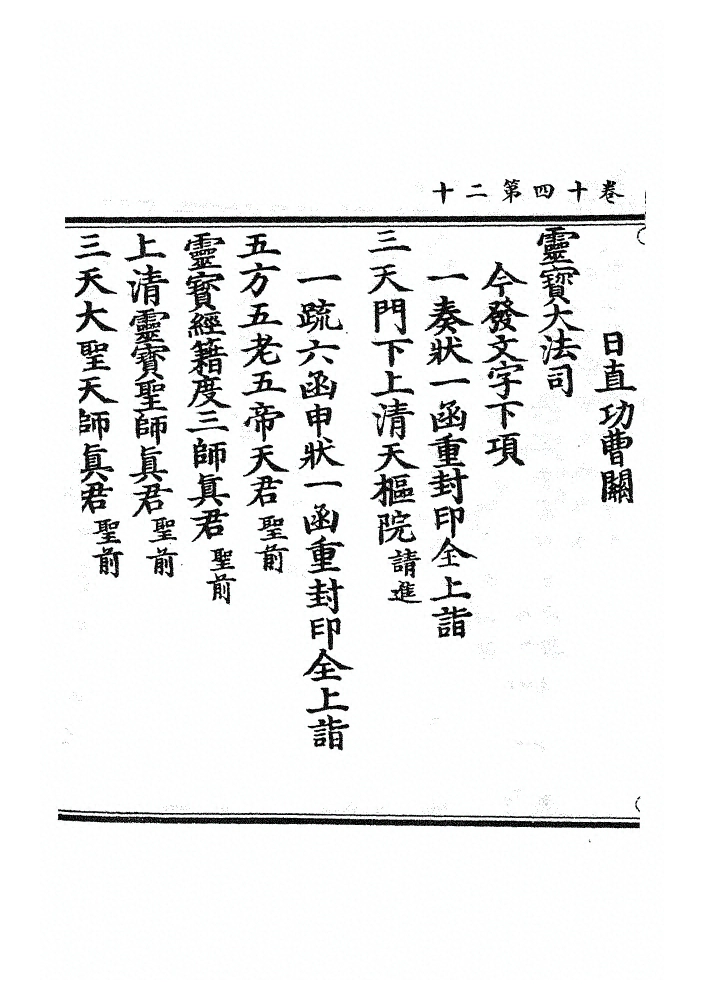 卷十四第二十
日直功曹關
靈寳大法司
今發文字下項
一奏狀一函重封印全上詣
三天門下上清天樞院請進
一疏六函申狀一函重封印全上詣
五方五老五帝天君聖前
靈寳經籍度三師眞君聖前
上清靈寳聖師眞君聖前
三天大聖天師眞君聖前